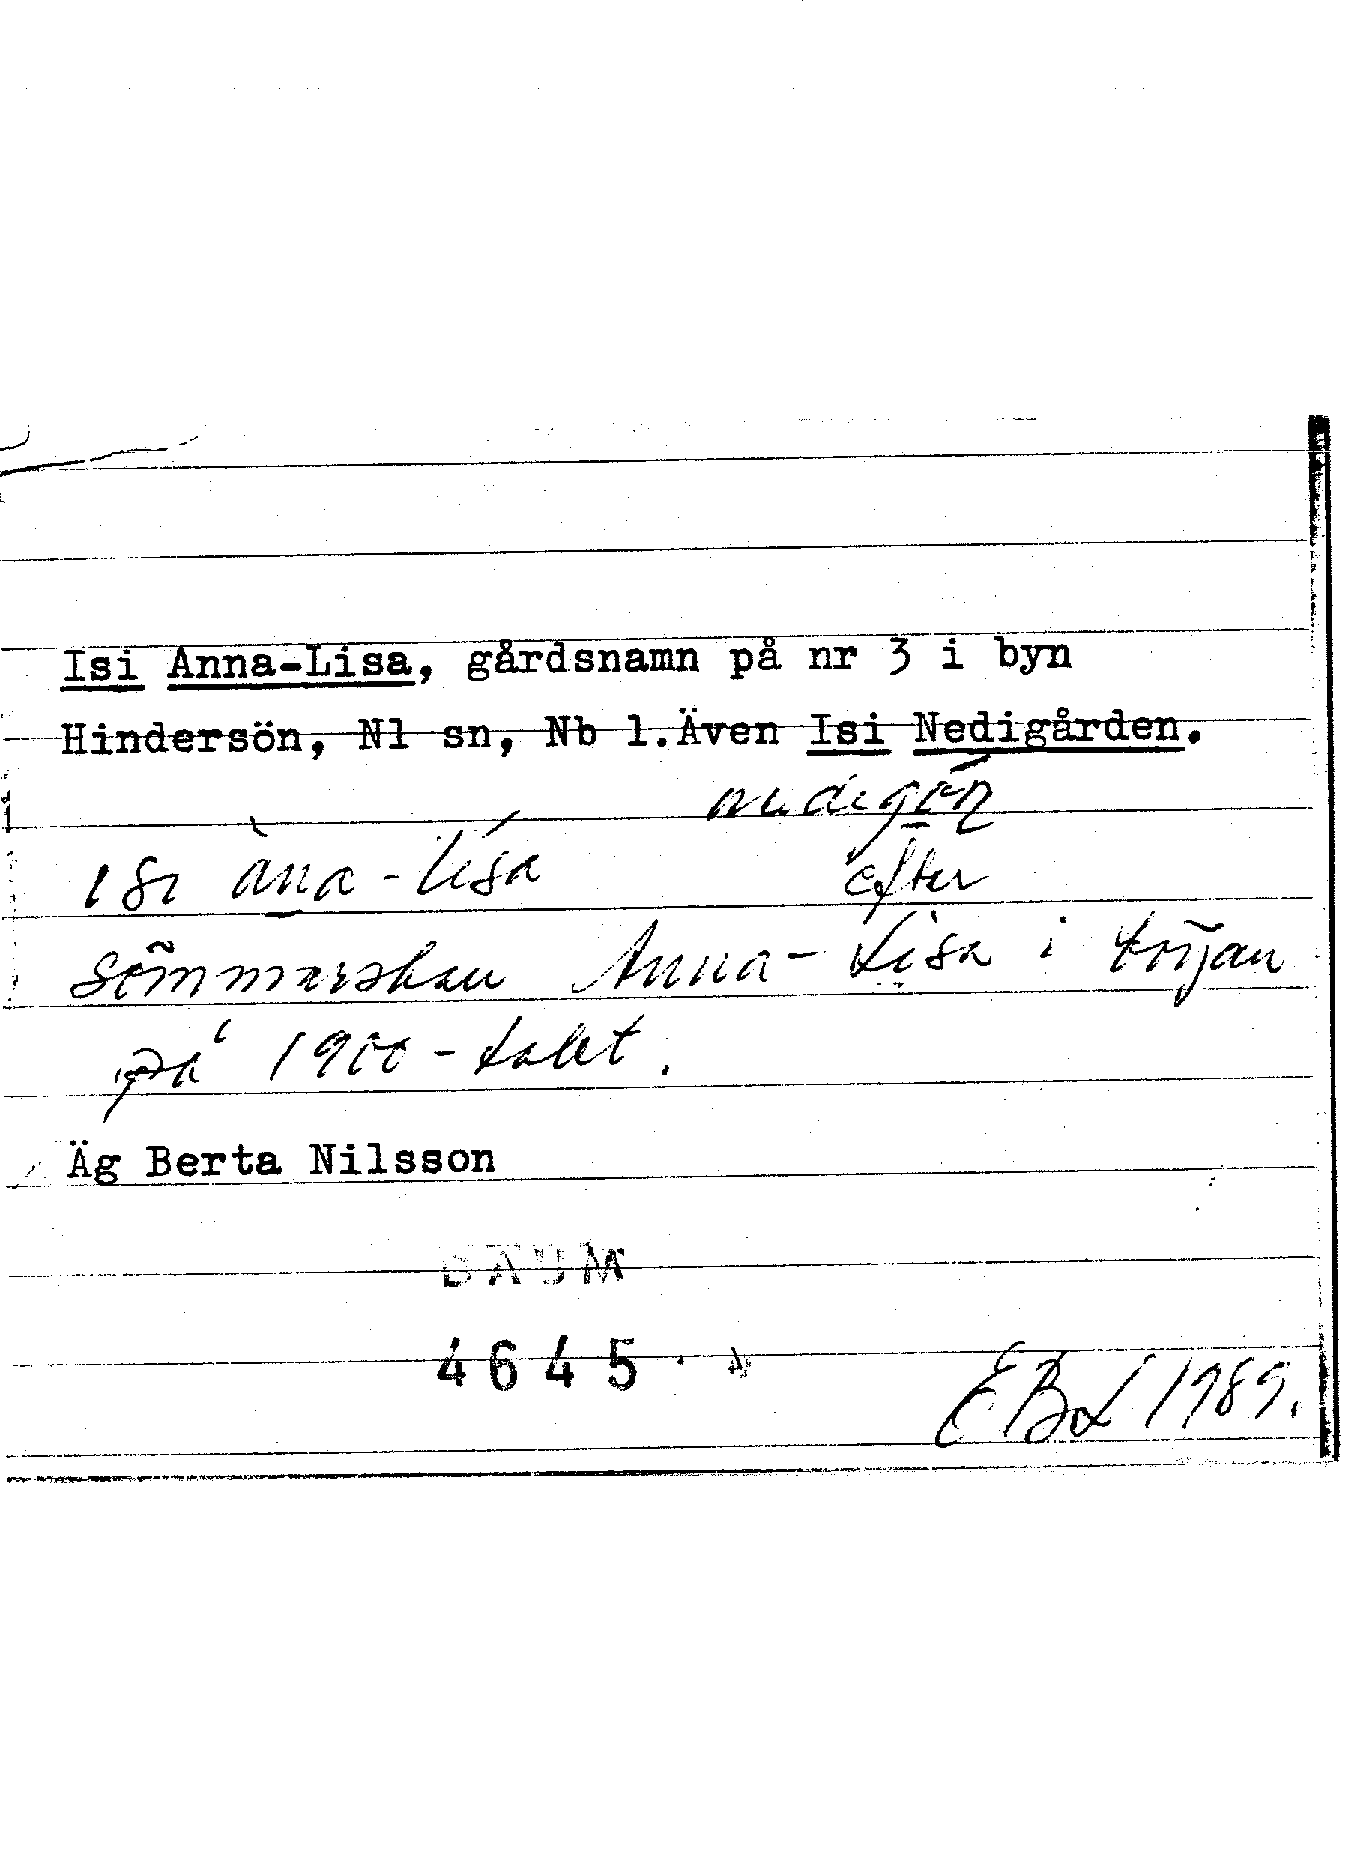 Isi Anna-Lisa, gårdsnamn på nr 3 i byn
Hindersön, Nl sn, Nb l. Även Isi Nedigården.
isi àna-lísa efter
sömmerskan Anna-Lisa i början
på 1900-talet.
Äg Berta Nilsson
DAUM
4645
EBL 1989.